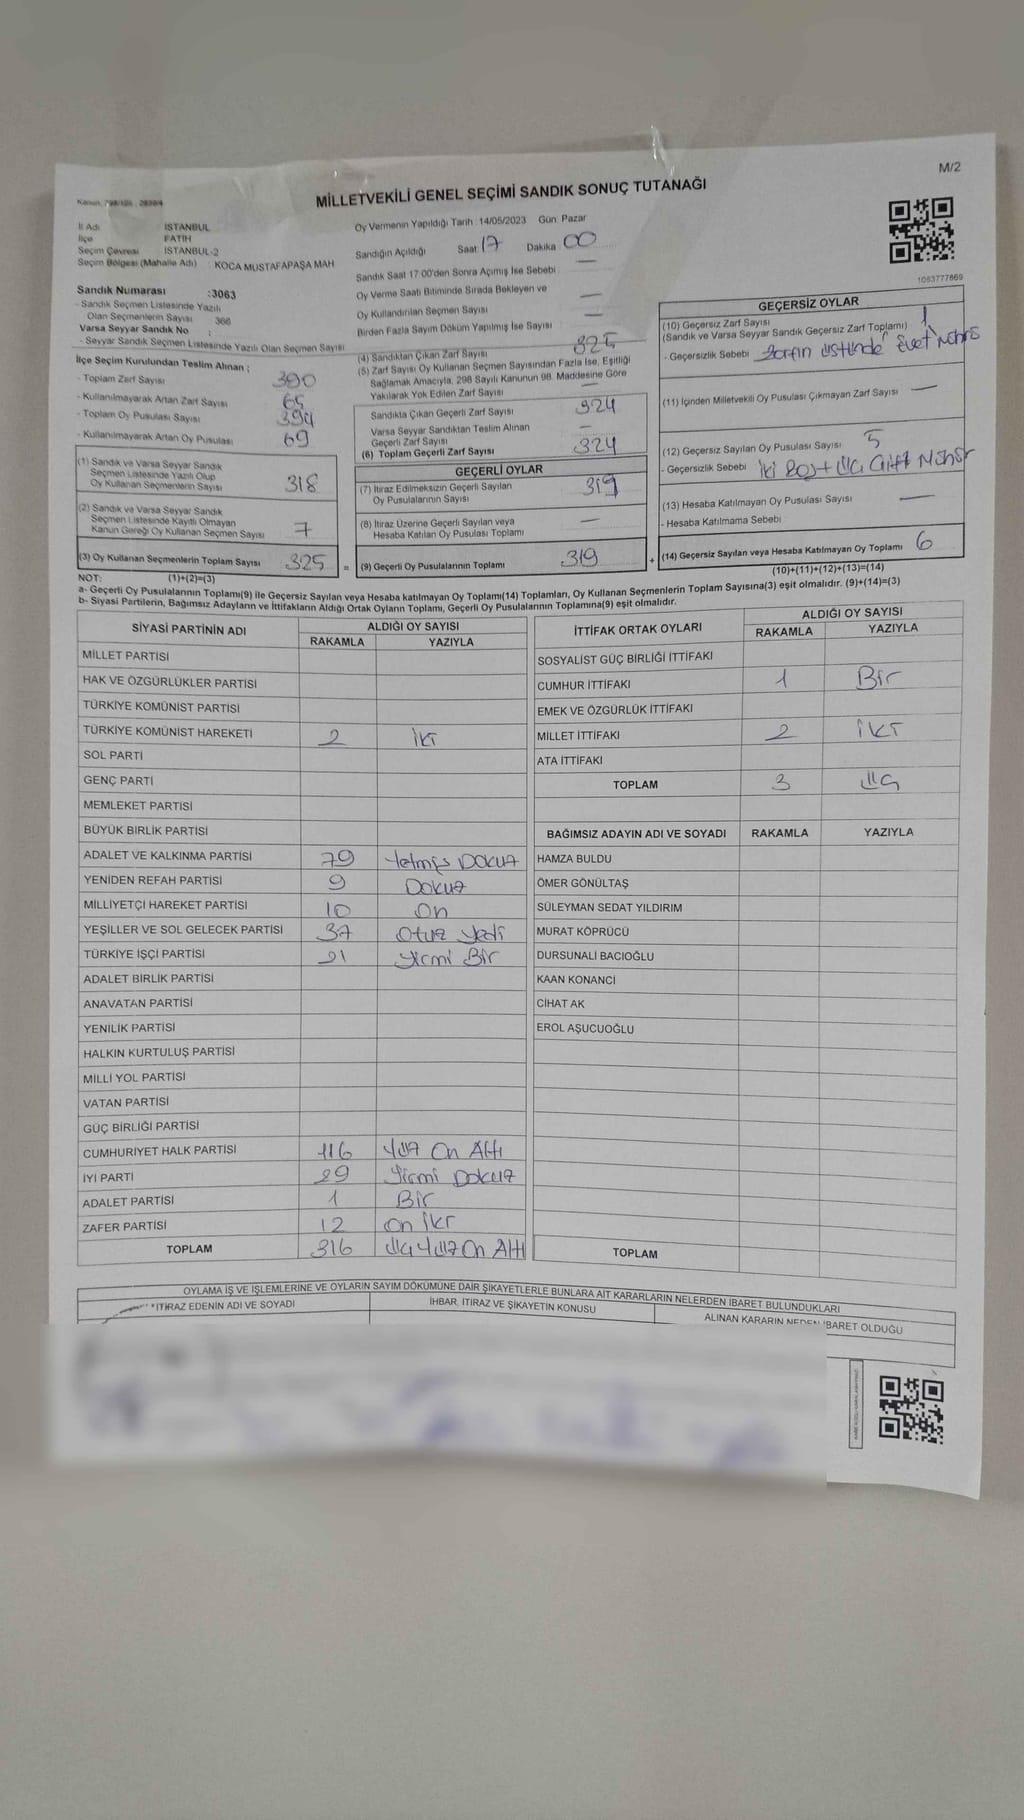 M/2
MİLLETVEKİLİ GENEL SEÇİMİ SANDIK SONUÇ TUTANAĞI
İl Adı İSTANBUL
İlçe FATİH
Seçim Çevresi İSTANBUL-2
Seçim Bölgesi (Mahalle Adı) : KOCA MUSTAFAPAŞA MAH
Sandık Numarası :3063
- Sandık Seçmen Listesinde Yazılı
Olan Seçmenlerin Sayısı 366
Varsa Seyyar Sandık No :
- Seyyar Sandık Seçmen Listesinde Yazılı Olan Seçmen Sayısı
İlçe Seçim Kurulundan Teslim Alınan ;
- Toplam Zarf Sayısı 390
- Kullanılmayarak Artan Zarf Sayısı 65
- Toplam Oy Pusulası Sayısı 394
- Kullanılmayarak Artan Oy Pusulası 69
(1) Sandık ve Varsa Seyyar Sandık
Seçmen Listesinde Yazılı Olup
Oy Kullanan Seçmenlerin Sayısı 318
(2) Sandık ve Varsa Seyyar Sandık
Seçmen Listesinde Kayıtlı Olmayan
Kanun Gereği Oy Kullanan Seçmen Sayısı 7
(3) Oy Kullanan Seçmenlerin Toplam Sayısı 325 =
Oy Vermenin Yapıldığı Tarih : 14/05/2023 Gün: Pazar
Sandığın Açıldığı Saat 17 Dakika 00
Sandık Saat 17:00'den Sonra Açımış İse Sebebi —
Oy Verme Saati Bitiminde Sırada Bekleyen ve
Oy Kullandırılan Seçmen Sayısı —
Birden Fazla Sayım Döküm Yapılmış İse Sayısı —
(4) Sandıktan Çıkan Zarf Sayısı 325
(5) Zarf Sayısı Oy Kullanan Seçmen Sayısından Fazla İse, Eşitliği
Sağlamak Amacıyla, 298 Sayılı Kanunun 98. Maddesine Göre
Yakılarak Yok Edilen Zarf Sayısı —
Sandıkta Çıkan Geçerli Zarf Sayısı 324
Varsa Seyyar Sandıktan Teslim Alınan
Geçerli Zarf Sayısı —
(6) Toplam Geçerli Zarf Sayısı 324
GEÇERLİ OYLAR
(7) İtiraz Edilmeksizin Geçerli Sayılan
Oy Pusulalarının Sayısı 319
(8) İtiraz Üzerine Geçerli Sayılan veya
Hesaba Katılan Oy Pusulası Toplamı —
(9) Geçerli Oy Pusulalarının Toplamı 319 +
1083777869
GEÇERSİZ OYLAR
(10) Geçersiz Zarf Sayısı 1
(Sandık ve Varsa Seyyar Sandık Geçersiz Zarf Toplamı)
- Geçersizlik Sebebi Zarfın üstünde "Evet" Mührü
(11) İçinden Milletvekili Oy Pusulası Çıkmayan Zarf Sayısı —
(12) Geçersiz Sayılan Oy Pusulası Sayısı 5
- Geçersizlik Sebebi iki Boş + üç Çift Mühür
(13) Hesaba Katılmayan Oy Pusulası Sayısı —
- Hesaba Katılmama Sebebi
(14) Geçersiz Sayılan veya Hesaba Katılmayan Oy Toplamı 6
NOT: (1)+(2)=(3)
(10)+(11)+(12)+(13)=(14)
a- Geçerli Oy Pusulasının Toplamı(9) ile Geçersiz Sayılan veya Hesaba katılmayan Oy Toplamı(14) Toplamları, Oy Kullanan Seçmenlerin Toplam Sayısına(3) eşit olmalıdır. (9)+(14)=(3)
b- Siyasi Partilerin, Bağımsız Adayların ve İttifakların Aldığı Ortak Oyların Toplamı, Geçerli Oy Pusulalarının Toplamına(9) eşit olmalıdır.
SİYASİ PARTİNİN ADI ALDIĞI OY SAYISI
RAKAMLA YAZIYLA
MİLLET PARTİSİ
HAK VE ÖZGÜRLÜKLER PARTİSİ
TÜRKİYE KOMÜNİST PARTİSİ
TÜRKİYE KOMÜNİST HAREKETİ 2 iki
SOL PARTİ
GENÇ PARTİ
MEMLEKET PARTİSİ
BÜYÜK BİRLİK PARTİSİ
ADALET VE KALKINMA PARTİSİ 79 Yetmiş Dokuz
YENİDEN REFAH PARTİSİ 9 Dokuz
MİLLİYETÇİ HAREKET PARTİSİ 10 On
YEŞİLLER VE SOL GELECEK PARTİSİ 37 Otuz Yedi
TÜRKİYE İŞÇİ PARTİSİ 21 Yirmi Bir
ADALET BİRLİK PARTİSİ
ANAVATAN PARTİSİ
YENİLİK PARTİSİ
HALKIN KURTULUŞ PARTİSİ
MİLLİ YOL PARTİSİ
VATAN PARTİSİ
GÜÇ BİRLİĞİ PARTİSİ
CUMHURİYET HALK PARTİSİ 116 Yüz On Altı
İYİ PARTİ 29 Yirmi Dokuz
ADALET PARTİSİ 1 Bir
ZAFER PARTİSİ 12 On iki
TOPLAM 316 üç Yüz On Altı
İTTİFAK ORTAK OYLARI ALDIĞI OY SAYISI
RAKAMLA YAZIYLA
SOSYALİST GÜÇ BİRLİĞİ İTTİFAKI
CUMHUR İTTİFAKI 1 Bir
EMEK VE ÖZGÜRLÜK İTTİFAKI
MİLLET İTTİFAKI 2 iki
ATA İTTİFAKI
TOPLAM 3 üç
BAĞIMSIZ ADAYIN ADI VE SOYADI RAKAMLA YAZIYLA
HAMZA BULDU
ÖMER GÖNÜLTAŞ
SÜLEYMAN SEDAT YILDIRIM
MURAT KÖPRÜCÜ
DURSUNALİ BACIOĞLU
KAAN KONANCİ
CİHAT AK
EROL AŞUCUOĞLU
TOPLAM
OYLAMA İŞ VE İŞLEMLERİNE VE OYLARIN SAYIM DÖKÜMÜNE DAİR ŞİKAYETLERLE BUNLARA AİT KARARLARIN NELERDEN İBARET BULUNDUKLARI
*İTİRAZ EDENİN ADI VE SOYADI İHBAR, İTİRAZ VE ŞİKAYETİN KONUSU ALINAN KARARIN NEDEN İBARET OLDUĞU